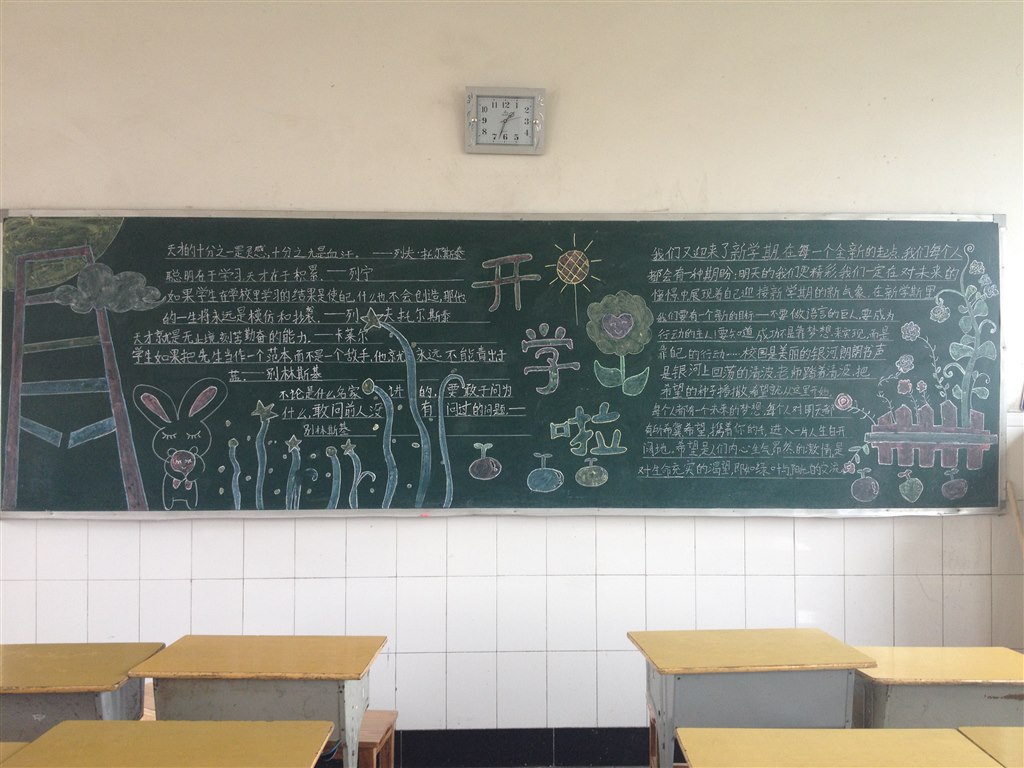 12
11
1
10
2
9
3
8
4
7
6
5
天才的十分之一是灵感,十分之九是血汗。——列夫·托尔斯泰
聪明在于学习,天才在于积累。——列宁
如果学生在学校里学习的结果是使自己什么也不会创造,那他
的一生将永远是模仿和抄袭。——列夫·托尔斯泰
天才就是无止境刻苦勤奋的能力。——卡莱尔
学生如果把先生当作一个范本,而不是一个敌手,他就永远不能青出于
蓝。——别林斯基
不论是什么名家讲的,要敢于问为
什么,敢问前人没有问过的问题。——
别林斯基
开
学
啦
我们又迎来了新学期,在每一个全新的起点,我们每个人
都会有一种期盼:明天的我们更精彩,我们一定在对未来的
憧憬中展现着自己迎接新学期的新气象。在新学期里
我们要有个新的目标——不要做语言的巨人,要成为
行动的主人!要知道成功不是靠梦想来实现,而是
靠自己的行动……校园是美丽的银河,朗朗书声
是银河上回荡的清波,老师踏着清波,把
希望的种子播撒,希望就从这里开始
每个人都有一个未来的梦想,每个人对明天都
有所希冀希望,携着你的手,进入一片人生百开
阔地。希望是人们内心生气勃然的激情,是
对生命充实的渴望,即如绿叶与阳光的交流